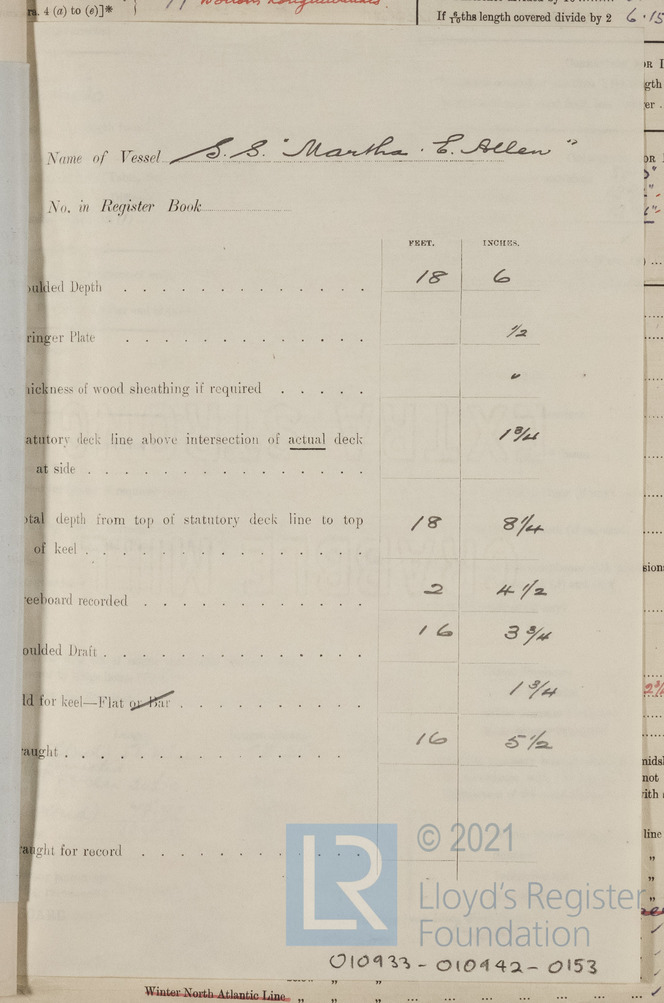 ra. 4 (a) to (e)]*
If 6/10ths length covered divide by 2 6.15
Name of Vessel S.S. "Martha. E. Allen"
No. in Register Book
FEET. INCHES.
oulded Depth 18 6
ringer Plate 1/2
hickness of wood sheathing if required "
atutory deck line above intersection of actual deck 1 3/4
at side
otal depth from top of statutory deck line to top 18 8 1/4
of keel
eeboard recorded 2 4 1/2
oulded Draft 16 3 3/4
ld for keel—Flat or Bar 1 3/4
aught 16 5 1/2
aught for record
© 2021
LR
Lloyd's Register
Foundation
010933-010942-0153
Winter North Atlantic Line " " "